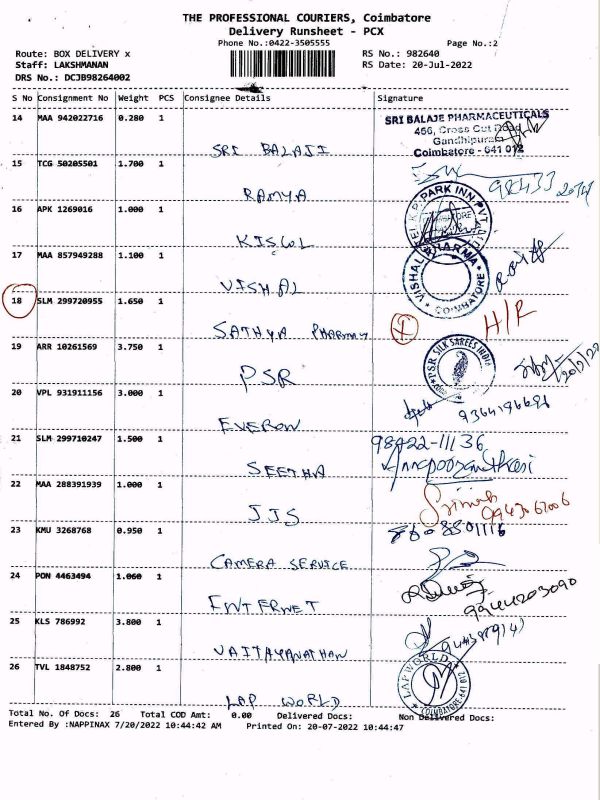 THE PROFESSIONAL COURIERS, Coimbatore
Delivery Runsheet - PCX
Phone No.:0422-3505555 Page No.:2
Route: BOX DELIVERY x RS No.: 982640
Staff: LAKSHMANAN RS Date: 20-Jul-2022
DRS No.: DCJB98264002
S No Consignment No Weight PCS Consignee Details Signature
14 MAA 942022716 0.280 1
SRI BALAJI
SRI BALAJE PHARMACEUTICALS
466, Cross Cut Road
Gandhipuram
Coimbatore - 641 012
15 TCG 50205501 1.700 1
RAMYA
16 APK 1269016 1.000 1
KISCOL
PARK INN
17 MAA 857949288 1.100 1
VISHAL
VISHAL PHARMA
COIMBATORE
18 SLM 299720955 1.650 1
SATHYA PHARMY H/R
19 ARR 10261569 3.750 1
PSR
PSR SILK SAREES INDIA
20 VPL 931911156 3.000 1
EVERON
21 SLM 299710247 1.500 1
SEETHA
98422-11136
22 MAA 288391939 1.000 1
JJS
23 KMU 3268768 0.950 1
CAMERA SERVICE
24 PON 4463494 1.060 1
ENTERNET
9944203090
25 KLS 786992 3.800 1
VAITAYANATHAN
26 TVL 1848752 2.800 1
LAP WORLD
LAPWORLD
COIMBATORE-641 012
Total No. Of Docs: 26 Total COD Amt: 0.00 Delivered Docs: Non Delivered Docs:
Entered By :NAPPINAX 7/20/2022 10:44:42 AM Printed On: 20-07-2022 10:44:47